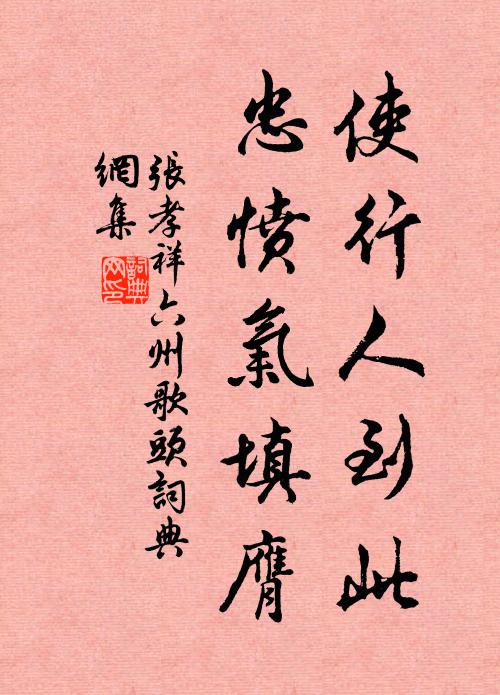 使行人到此
忠憤氣填膺
張孝祥六州歌頭詞典
網集
詞典
网印